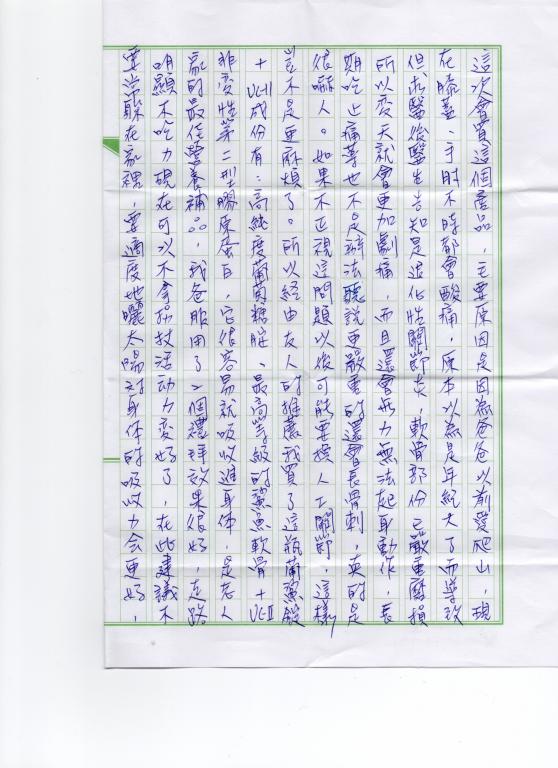 這次會買這個產品，主要原因是因為爸爸以前愛爬山，現
在膝蓋、手肘不時都會酸痛，原本以為是年紀大了而導致
但求醫後醫生告知是退化性關節炎，軟骨部份已嚴重磨損
所以变天就會更加劇痛，而且還會無力無法起身動作，長
期吃止痛葯也不是辦法聽說更嚴重的還會長骨刺，真的是
很嚇人。如果不正視這問題以後可能要換人工關節，這樣
豈不是更麻煩了。所以經由友人的推薦我買了這瓶葡鯊錠
+UCII成份有：高純度葡萄糖胺、最高等級的鯊魚軟骨+UCII
非变性第二型膠原蛋白，它很容易就吸收進身体，是老人
家的最佳營養補品，我爸服用了2個禮拜效果很好，走路
明顯不吃力現在可以不拿拐杖活动力变好了，在此建議不
要常躲在家裡，要適度地曬太陽对身体的吸收力会更好，